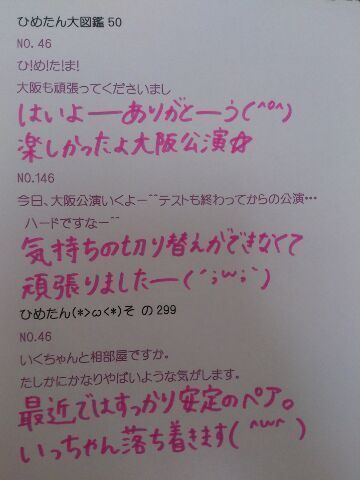 ひめたん大図鑑50
NO.46
ひ!め!た!ま!
大阪も頑張ってくださいまし
はいよーーありがとーう(^o^)
楽しかったよ大阪公演☆
NO.146
今日、大阪公演いくよー^^テストも終わってからの公演…
ハードですなー^^
気持ちの切り替えができなくて
頑張りましたー(´;ω;`)
ひめたん(*>ω<*)そ の299
NO.46
いくちゃんと相部屋ですか。
たしかにかなりやばいような気がします。
最近ではすっかり安定のペア。
いっちゃん落ち着きます( ^ω^ )